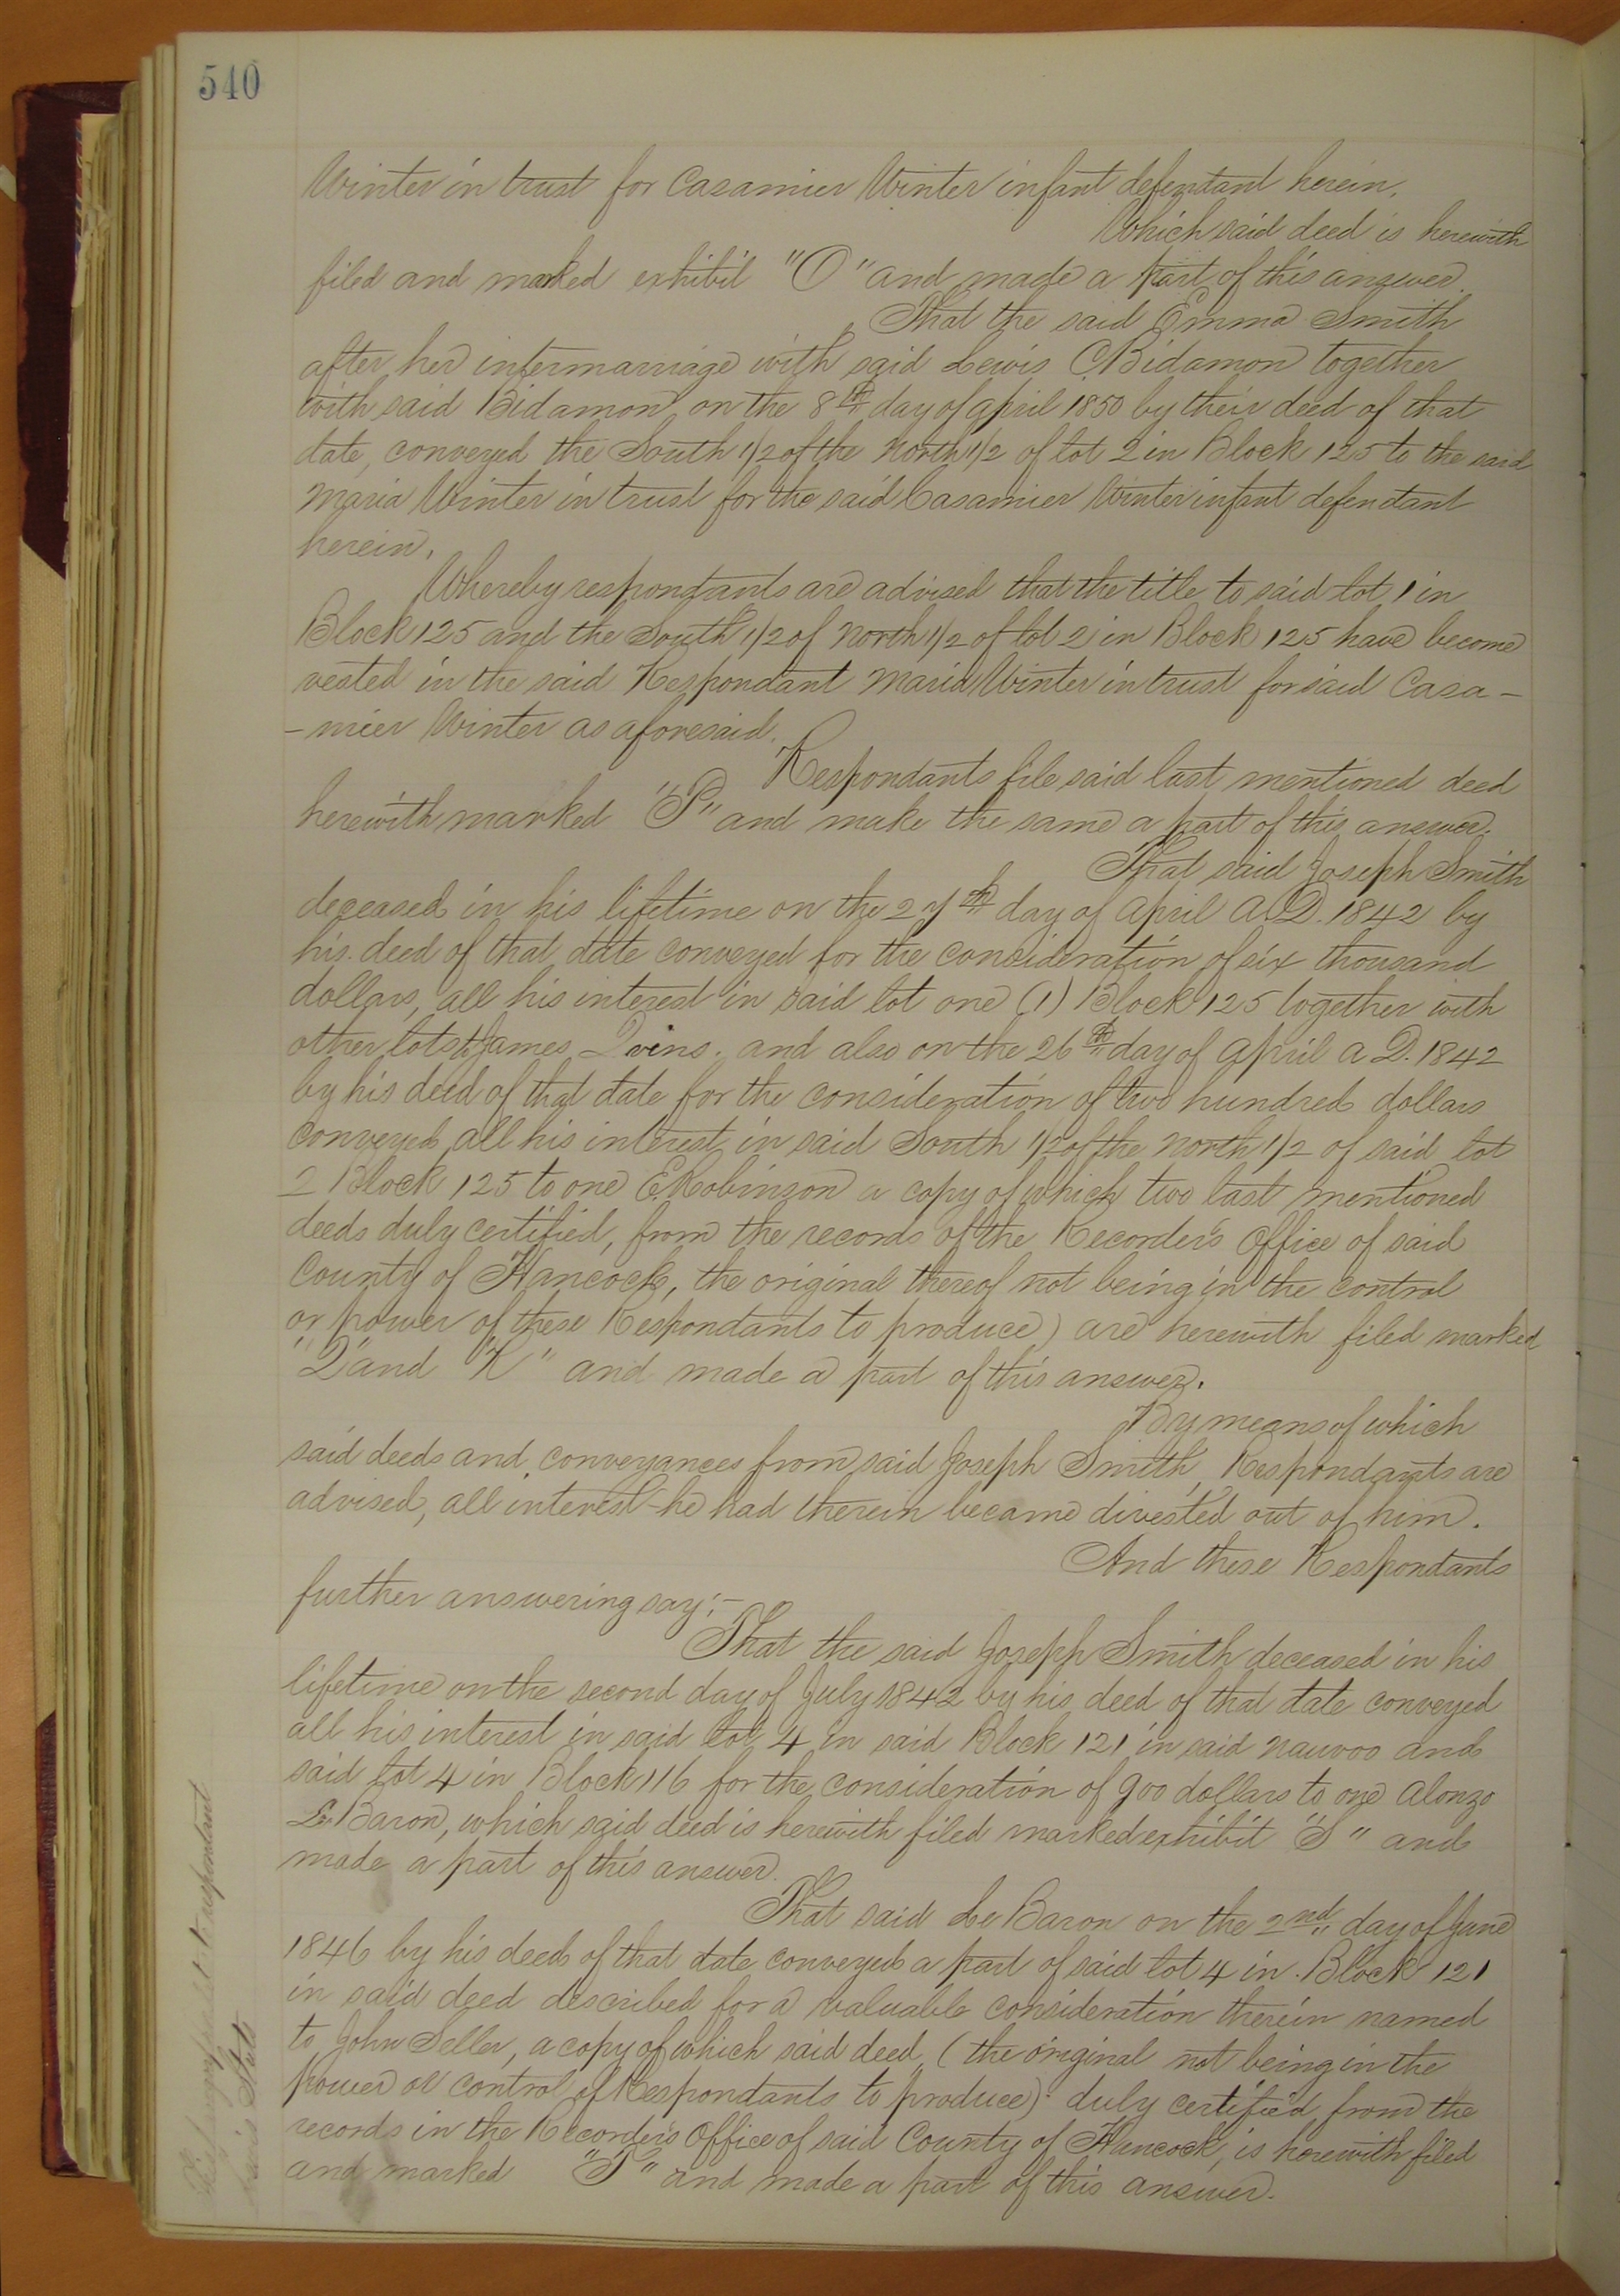 540
Winter in trust for Casamier Winter infant defendant herein.
Which said deed is herewith
filed and marked exhibit "O" and made a part of this answer.
That the said Emma Smith
after her intermarriage with said Lewis C Bidamon together
with said Bidamon on the 8th day of April 1850 by their deed of that
date, conveyed the South 1/2 of the North 1/2 of lot 2 in Block 125 to the said
Maria Winter in trust for the said Casamier Winter infant defendant
herein.
Whereby respondants are advised that the title to said lot 1 in
Block 125 and the South 1/2 of North 1/2 of lot 2 in Block 125 have become
vested in the said Respondant Maria Winter in trust for said Casa-
-mier Winter as aforesaid.
Respondants file said last mentioned deed
herewith marked "P" and make the same a part of this answer.
That said Joseph Smith
deceased in his lifetime on the 27th day of April A.D. 1842 by
his deed of that date conveyed for the consideration of six thousand
dollars, all his interest in said lot one (1) Block 125 together with
other lots to James Ivins. and also on the 26th day of April A D. 1842
by his deed of that date for the consideration of two hundred dollars
conveyed all his interest in said South 1/2 of the North 1/2 of said lot
2 Block 125 to one E. Robinson a copy of which two last mentioned
deeds duly certified, from the records of the Recorder's Office of said
County of Hancock, the original thereof not being in the control
or power of these Respondants to produce) are herewith filed marked
"Q" and "R" and made a part of this answer.
By means of which
said deeds and conveyances from said Joseph Smith, Respondants are
advised, all interest he had therein became divested out of him.
And these Respondants
further answering say;-
That the said Joseph Smith deceased in his
lifetime on the second day of July 1842 by his deed of that date conveyed
all his interest in said lot 4 in said Block 121 in said Nauvoo and
said lot 4 in Block 116 for the consideration of 900 dollars to one Alonzo
LeBaron, which said deed is herewith filed marked exhibit "S" and
made a part of this answer.
That said Le Baron on the 2nd day of June
1846 by his deed of that date conveyed a part of said lot 4 in Block 121
in said deed described for a valuable consideration therein named
to John Seller, a copy of which said deed (the original not being in the
power or control of Respondants to produce) duly certified from the
records in the Recorder's Office of said County of Hancock, is herewith filed
and marked "T" and made a part of this answer.